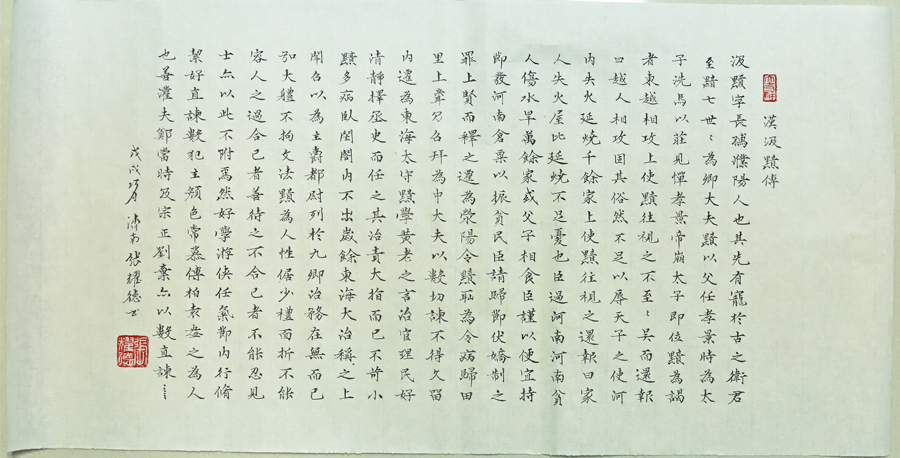 漢汲黯傳
汲黯字長孺濮陽人也其先有寵於古之衛君
至黯七世〻為卿大夫黯以父任孝景時為太
子洗馬以莊見憚孝景帝崩太子即位黯為謁
者東越相攻上使黯往視之不至〻吳而還報
曰越人相攻固其俗然不足以辱天子之使河
內失火延燒千餘家上使黯往視之還報曰家
人失火屋比延燒不足憂也臣過河南河南貧
人傷水旱萬餘家或父子相食臣謹以便宜持
節發河南倉粟以振貧民臣請歸節伏矯制之
罪上賢而釋之遷為滎陽令黯恥為令病歸田
里上聞乃召拜為中大夫以數切諫不得久留
內遷為東海太守黯學黃老之言治官理民好
清靜擇丞史而任之其治責大指而已不苛小
黯多病臥閨閤內不出歲餘東海大治稱之上
聞召以為主爵都尉列於九卿治務在無而已
弘大體不拘文法黯為人性倨少禮面折不能
容人之過合己者善待之不合己者不能忍見
士亦以此不附焉然好學游俠任氣節內行脩
絜好直諫數犯主顏色常慕傅柏袁盎之為人
也善灌夫鄭當時及宗正劉棄亦以數直諫
戊戌 濟南張耀德書
張耀德